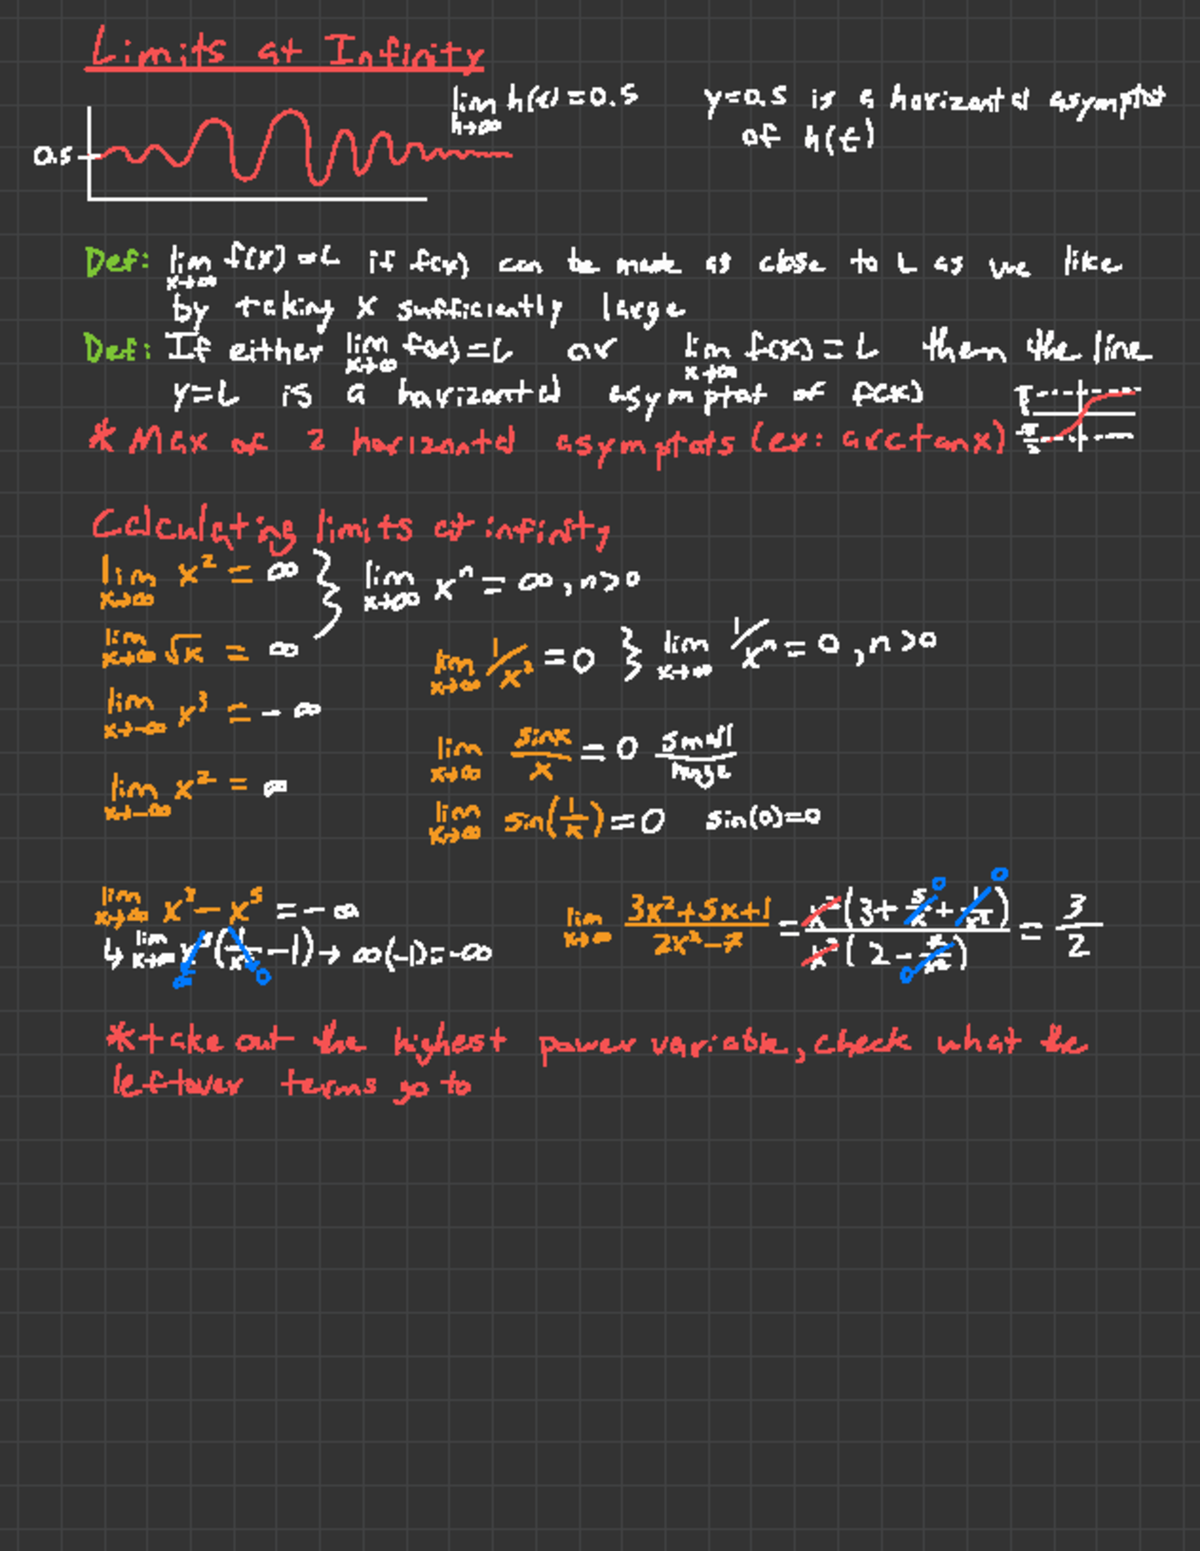 Limits at Infinity
lim h(t) = 0.5 y=0.5 is a horizontal asymptot
h→∞ of h(t)
0.5
Def: lim f(x) = L if f(x) can be made as close to L as we like
x→∞
by taking x sufficiently large
Def: If either lim f(x) = L or lim f(x) = L then the line
x→∞ x→∞
y=L is a horizontal asymptot of f(x)
* Max of 2 horizontal asymptots (ex: arctanx)
Calculating limits at infinity
lim x² = ∞ } lim xⁿ = ∞, n>0
x→∞ x→∞
lim √x = ∞
x→∞
lim 1/x² = 0 } lim 1/xⁿ = 0, n>0
x→∞ x→∞
lim x³ = -∞
x→-∞
lim sinx/x = 0 small/huge
x→∞
lim x² = ∞
x→-∞
lim sin(1/x) = 0 sin(0)=0
x→∞
lim x³ - x⁵ = -∞
x→∞
↳ lim x⁵(1/x² - 1) → ∞(-1) = -∞
x→∞
∞ 0
lim 3x²+5x+1/2x²-7 = x²(3+5/x+1/x²)/x²(2-7/x²) = 3/2
x→∞
0 0 0
*take out the highest power variable, check what the
leftover terms go to